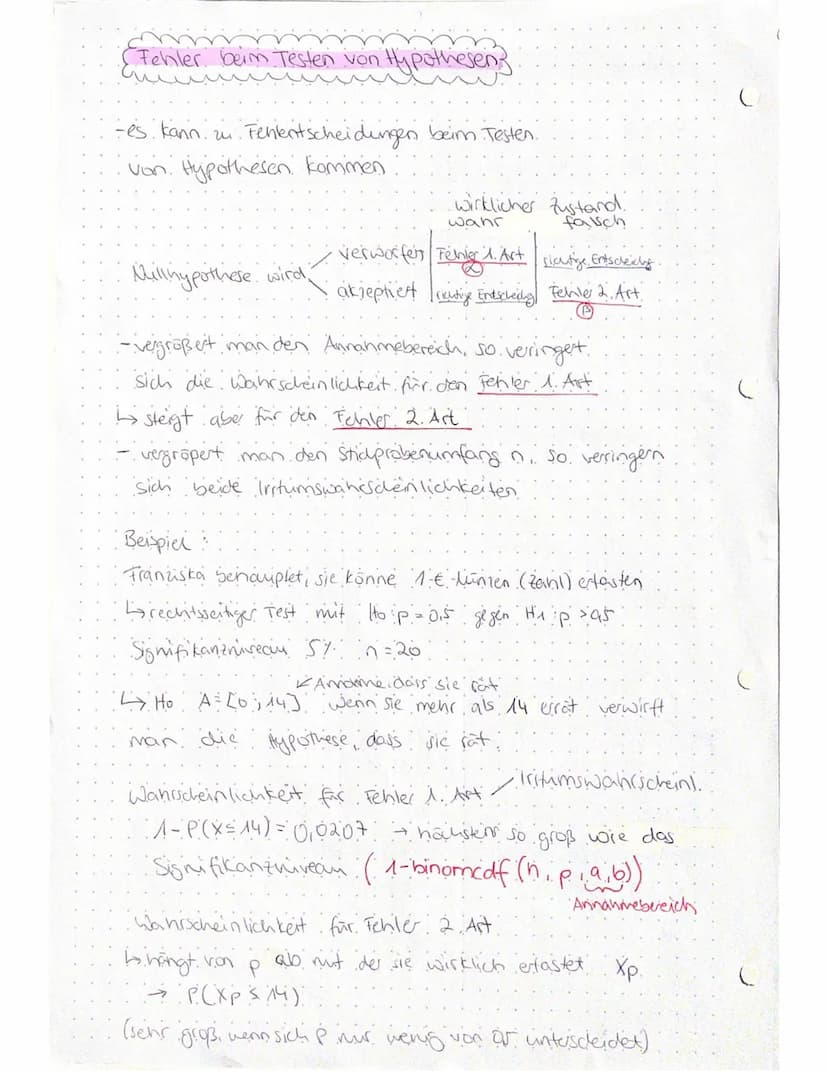 Fehler beim Testen von Hypothesen
-es kann zu Fehlentscheidungen beim Testen
von Hypothesen kommen
wirklicher Zustand
wahr falsch
Nullhypothese wird
verworfen Fehler 1. Art richtige Entscheidg
α
akzeptiert richtige Entscheidg Fehler 2. Art
β
-vergrößert man den Annahmebereich, so verringert
sich die Wahrscheinlichkeit für den Fehler 1. Art
↳ steigt aber für den Fehler 2. Art
- vergrößert man den Stichprobenumfang n, so verringern
sich beide Irrtumswahrscheinlichkeiten
Beispiel:
Franziska behauptet, sie könne 1-€-Münzen (Zahl) ertasten
↳ rechtsseitiger Test mit H0: p = 0,5 gegen H1: p > 0,5
Signifikanzniveau 5% n = 20
↙ Annahme, dass sie rät
↳ H0 A = [0; 14] wenn sie mehr als 14 errät verwirft
man die Hypothese, dass sie rät.
Wahrscheinlichkeit für Fehler 1. Art / Irrtumswahrscheinl.
1 - P(X ≤ 14) = 0,0207 → höchstens so groß wie das
Signifikanzniveau (1-binomcdf(n, p, a, b))
Annahmebereich
Wahrscheinlichkeit für Fehler 2. Art
↳ hängt von p ab mit der sie wirklich ertastet Xp
→ P(Xp ≤ 14)
(sehr groß, wenn sich p nur wenig von 0,5 unterscheidet)